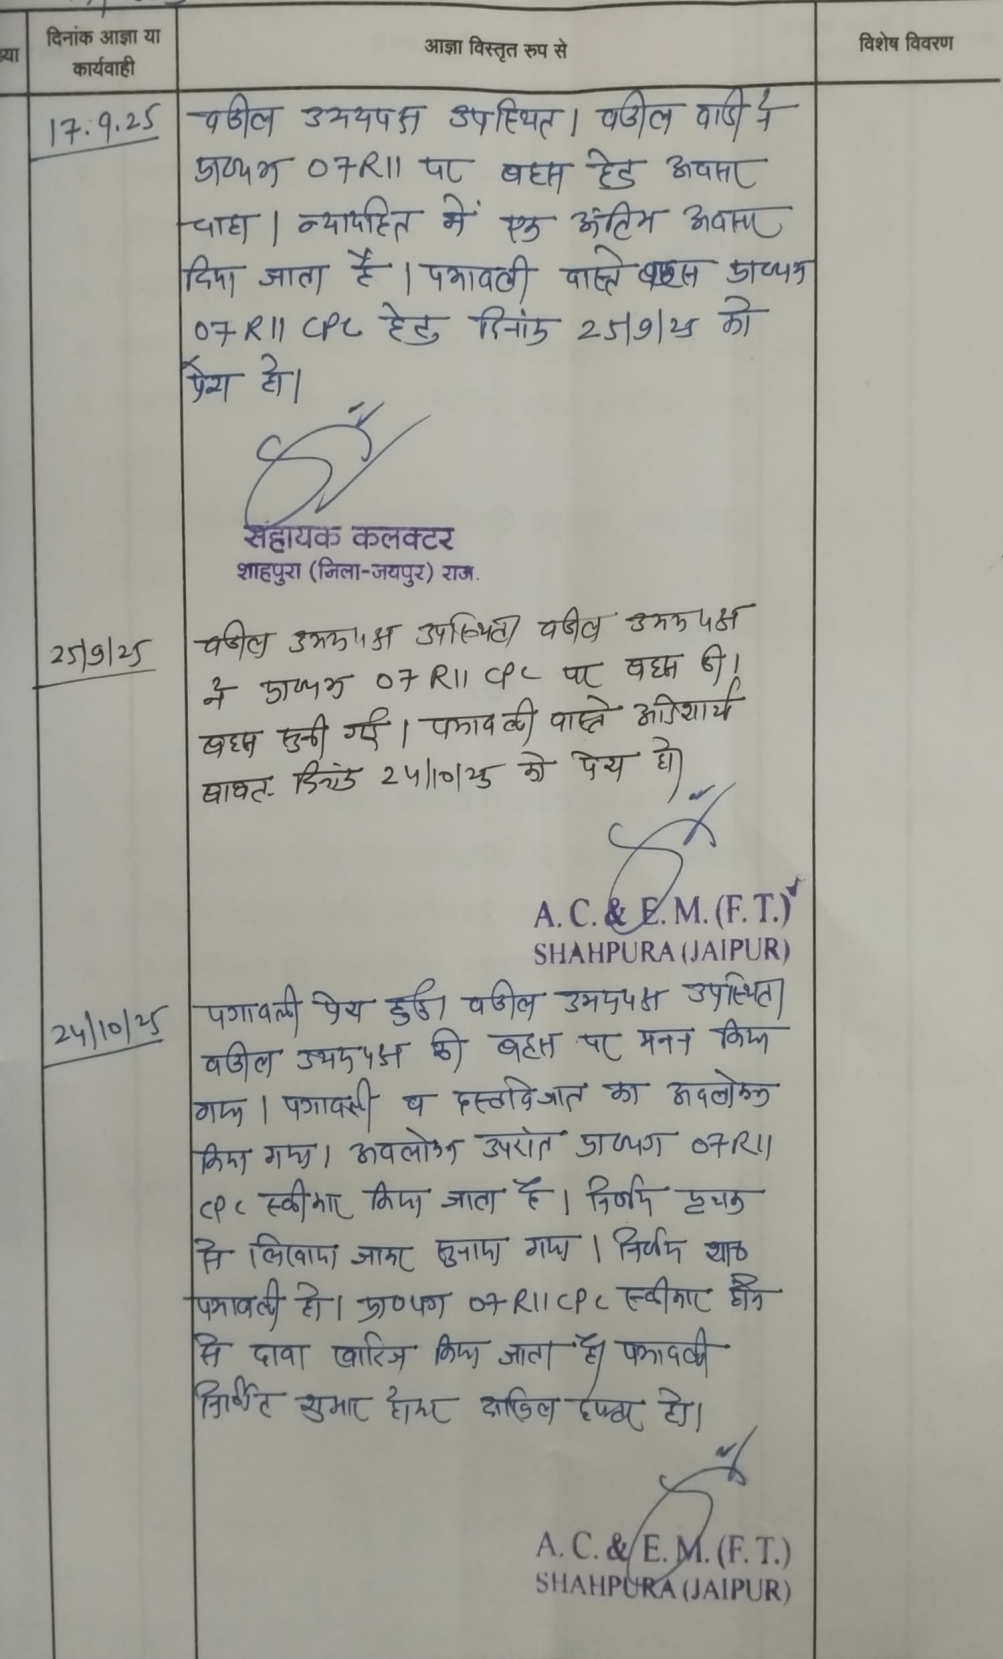 दिनांक आज्ञा या
कार्यवाही
आज्ञा विस्तृत रुप से
विशेष विवरण
17.9.25
वकील उभयपक्ष उपस्थित। वकील वादी ने
प्रा०पत्र 07R11 पर बहस हेतु अवसर
चाहा। न्यायहित में एक अंतिम अवसर
दिया जाता है। पत्रावली वास्ते बहस प्रा०पत्र
07R11 CPC हेतु दिनांक 25/9/25 को
पेश हो।
सहायक कलक्टर
शाहपुरा (जिला-जयपुर) राज.
25/9/25
वकील उभयपक्ष उपस्थित। वकील उभयपक्ष
ने प्रा०पत्र 07R11 CPC पर बहस की।
बहस सुनी गई। पत्रावली वास्ते
दिनांक 24/10/25 को पेश हो।
A. C. & E. M. (F. T.)
SHAHPURA (JAIPUR)
24/10/25
पत्रावली पेश हुई। वकील उभयपक्ष उपस्थित।
वकील उभयपक्ष की बहस पर मनन किया
गया। पत्रावली व दस्तावेजात का अवलोकन
किया गया। अवलोकन उपरांत प्रा०पत्र 07R11
CPC स्वीकार किया जाता है। निर्णय पृथक
से लिखाया जाकर सुनाया गया। निर्णय शा०
पत्रावली हो। प्रा०पत्र 07R11 CPC स्वीकार होने
से दावा खारिज किया जाता है। पत्रावली
निर्णित शुमार होकर दाखिल दफ्तर हो।
A. C. & E. M. (F. T.)
SHAHPURA (JAIPUR)